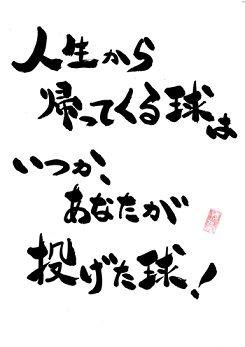 人生から
帰ってくる球は
いつか、
あなたが
投げた球!